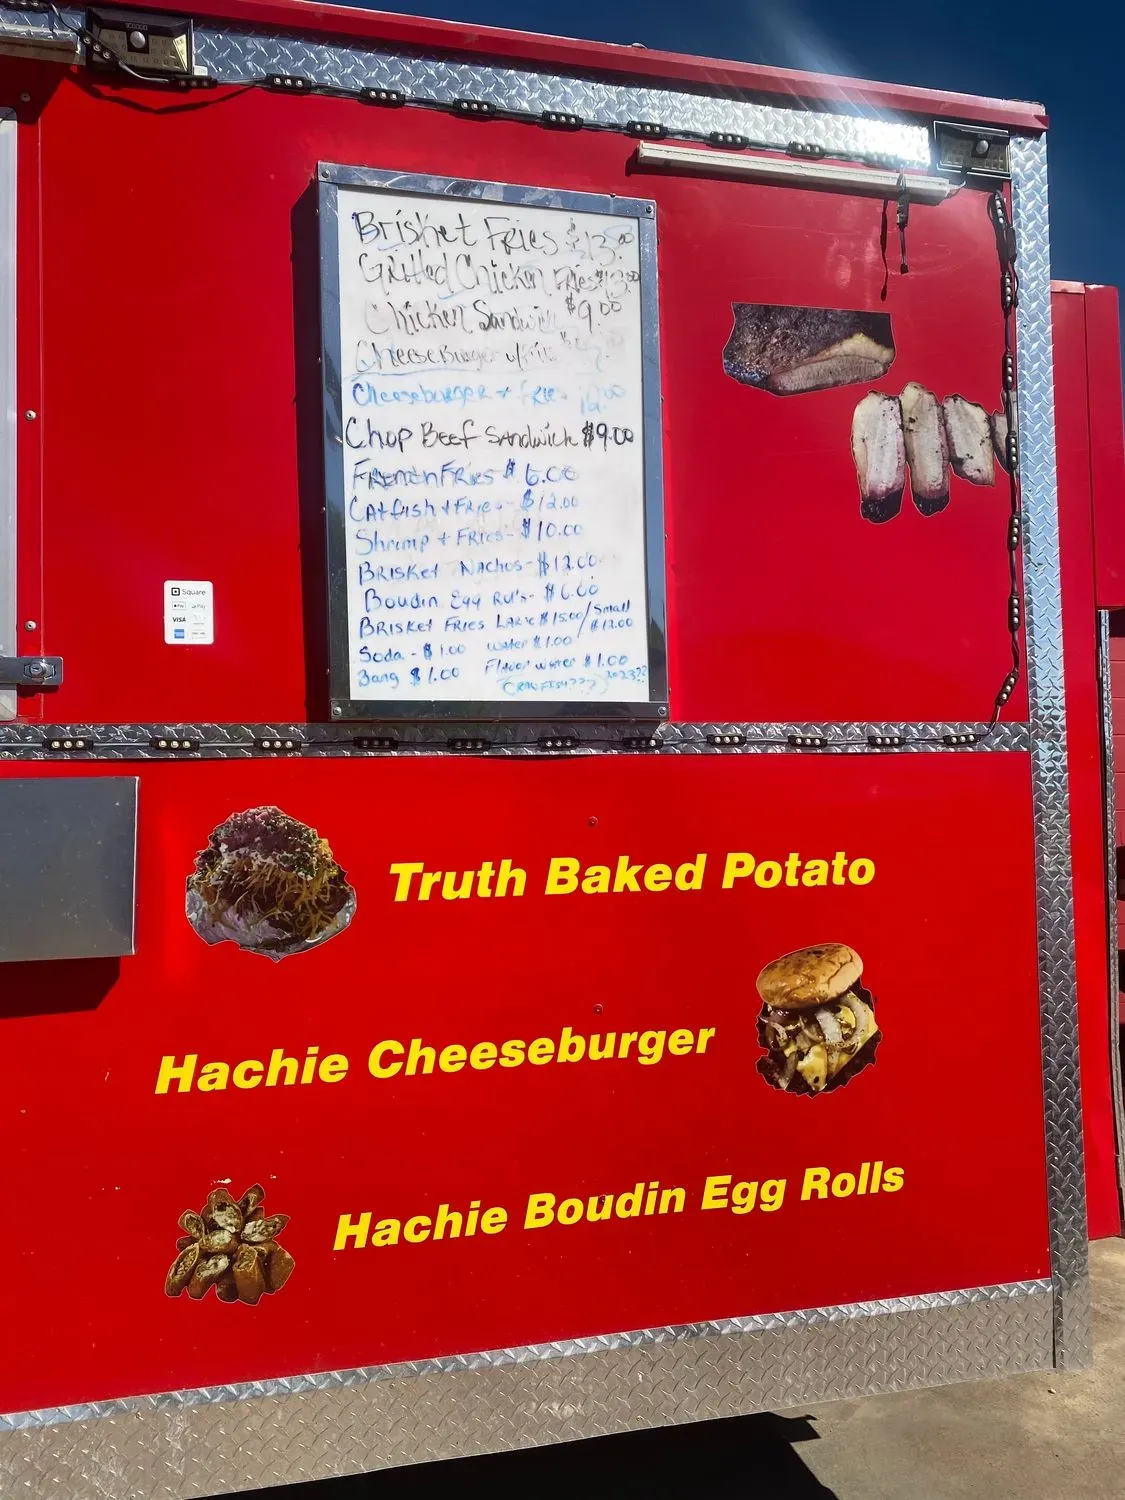 Brisket Fries $13.00
Grilled Chicken Fries $13.00
Chicken Sandwich $9.00
CheeseBurger w/
Cheeseburger + Fries
Chop Beef Sandwich $9.00
French Fries $6.00
Catfish + Fries - $12.00
Shrimp + Fries - $10.00
Brisket Nachos - $12.00
Boudin Egg - $6.00
Brisket Fries Large $15.00/Small
$12.00
Soda - $1.00 water $1.00
Bang $1.00 Flavor water $1.00
(CRAWFISH???) 2023??
Square
Pay Pay
VISA
Truth Baked Potato
Hachie Cheeseburger
Hachie Boudin Egg Rolls